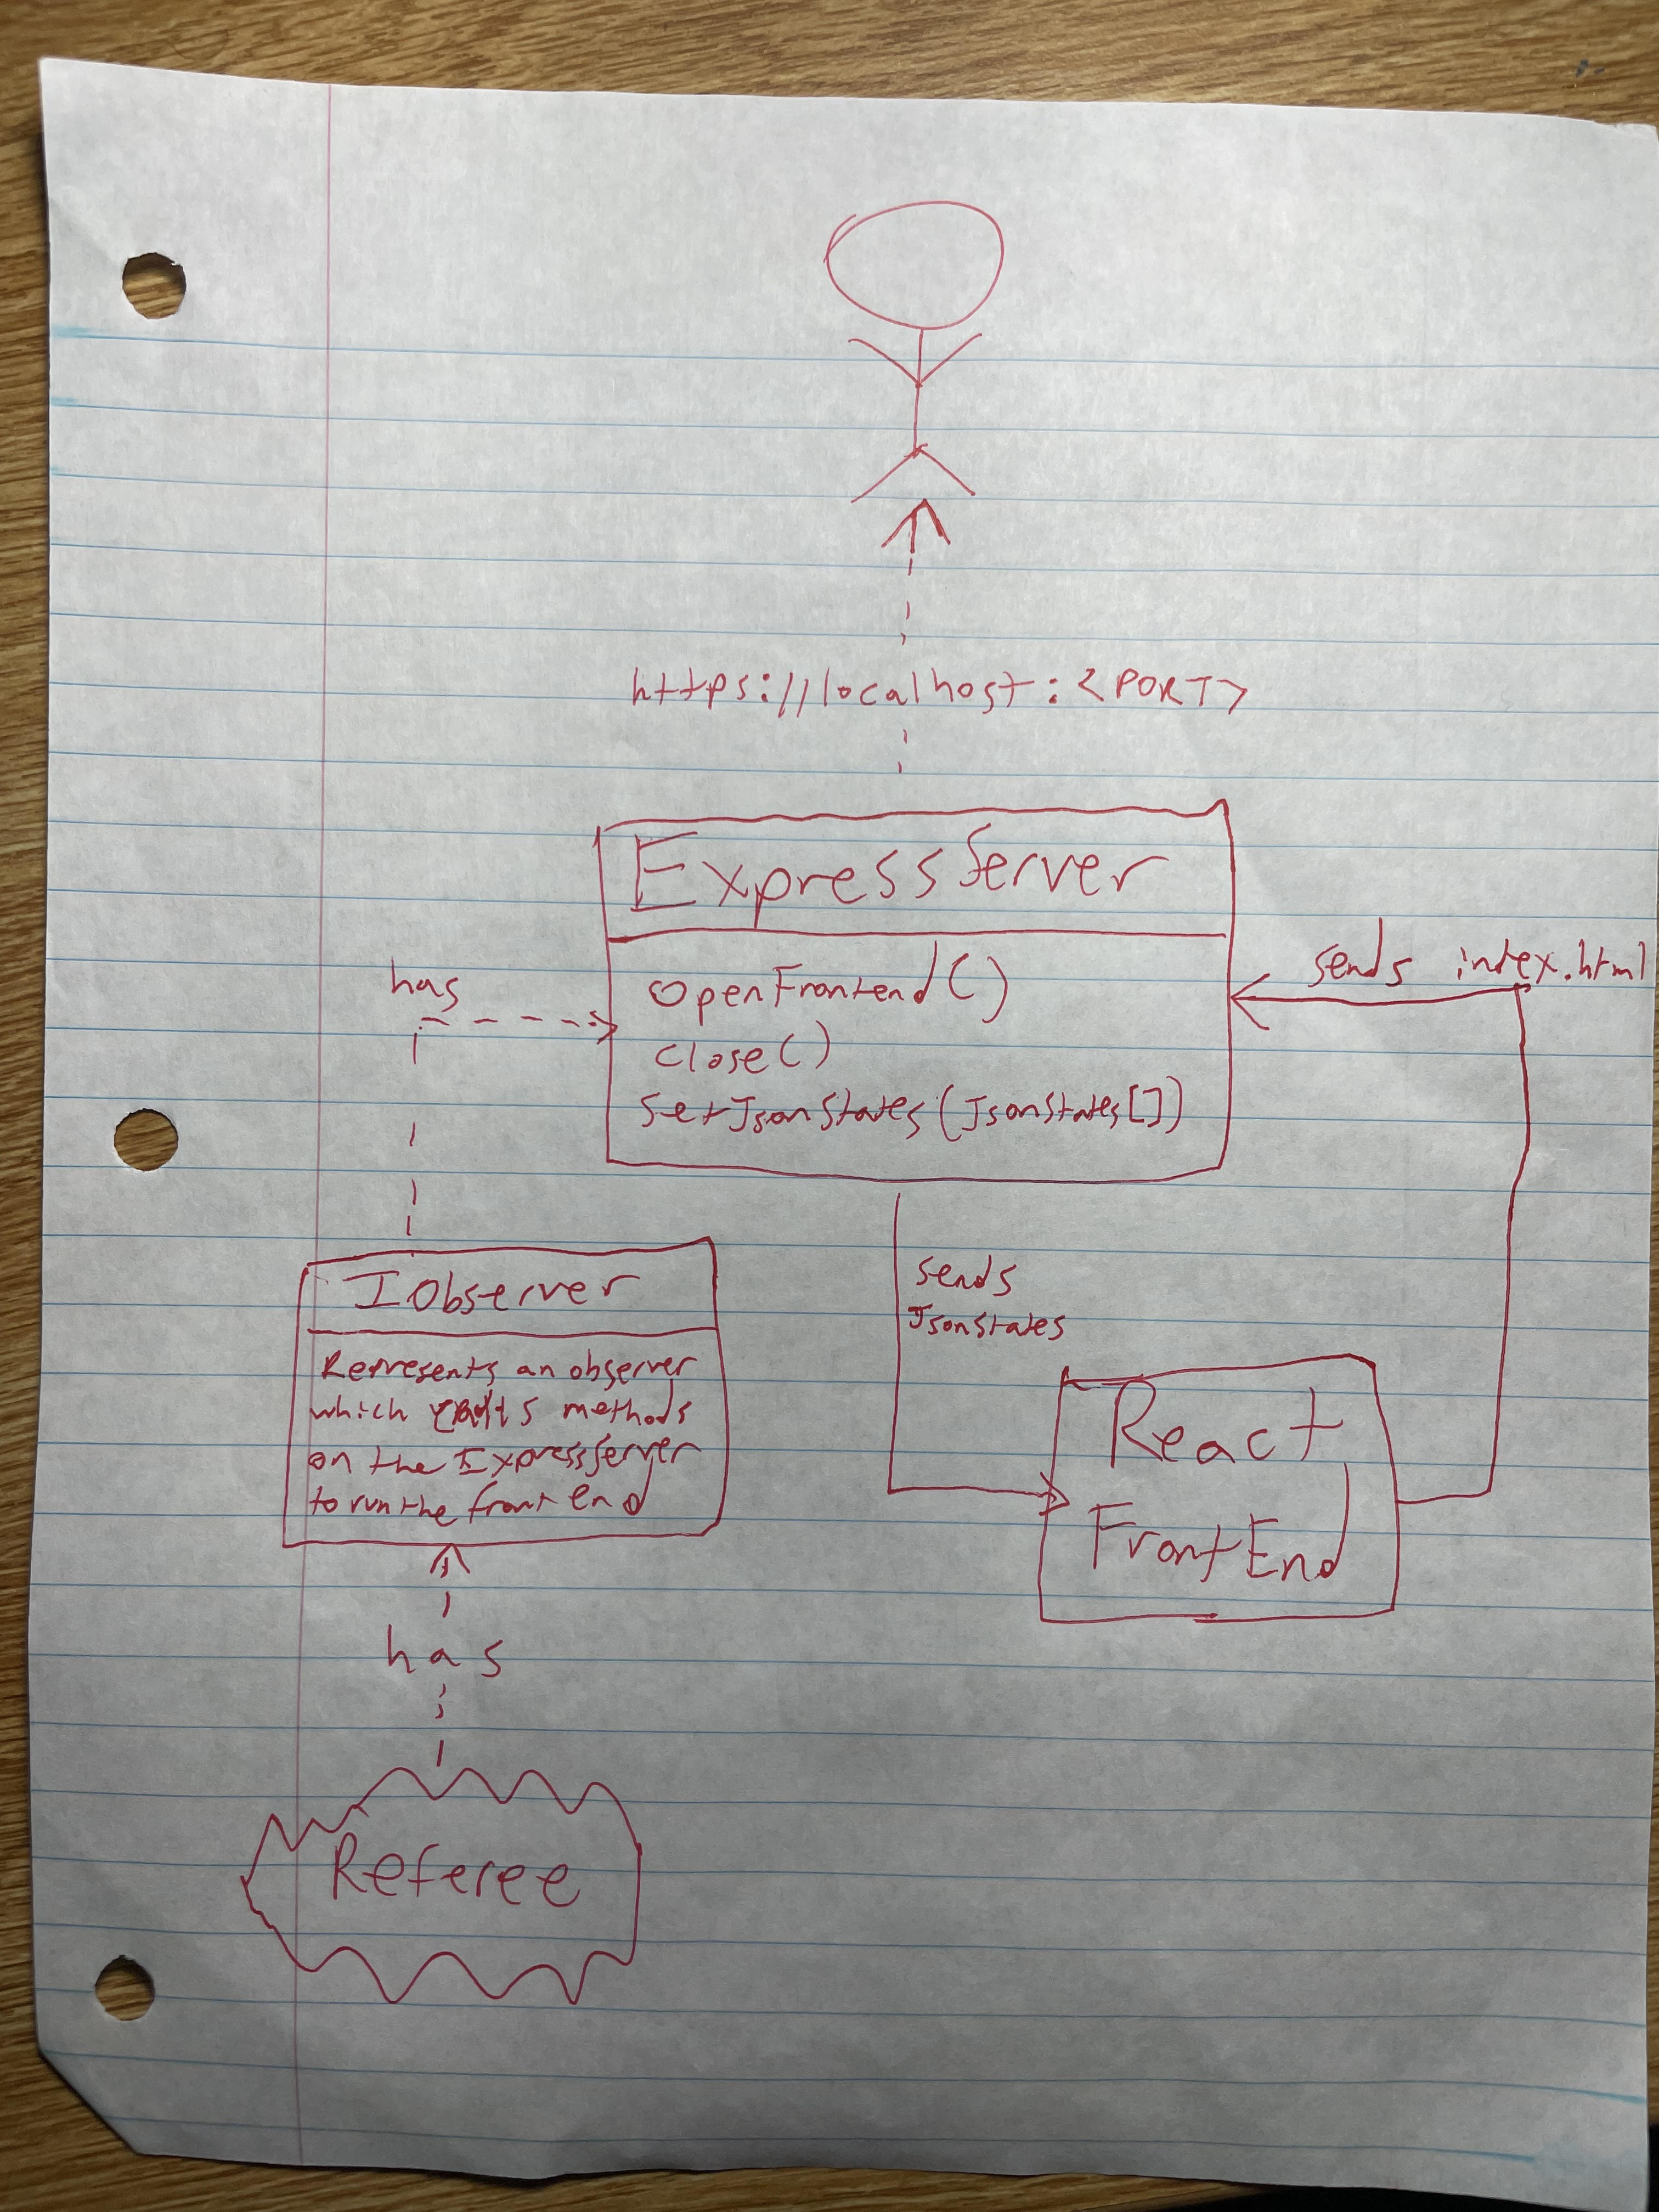 https://localhost:<PORT>
ExpressServer
openFrontend()
close()
setJsonStates(JsonStates[])
has
sends index.html
sends
JsonStates
IObserver
Represents an observer
which calls methods
on the IExpressServer
to run the front end
React
FrontEnd
has
Referee